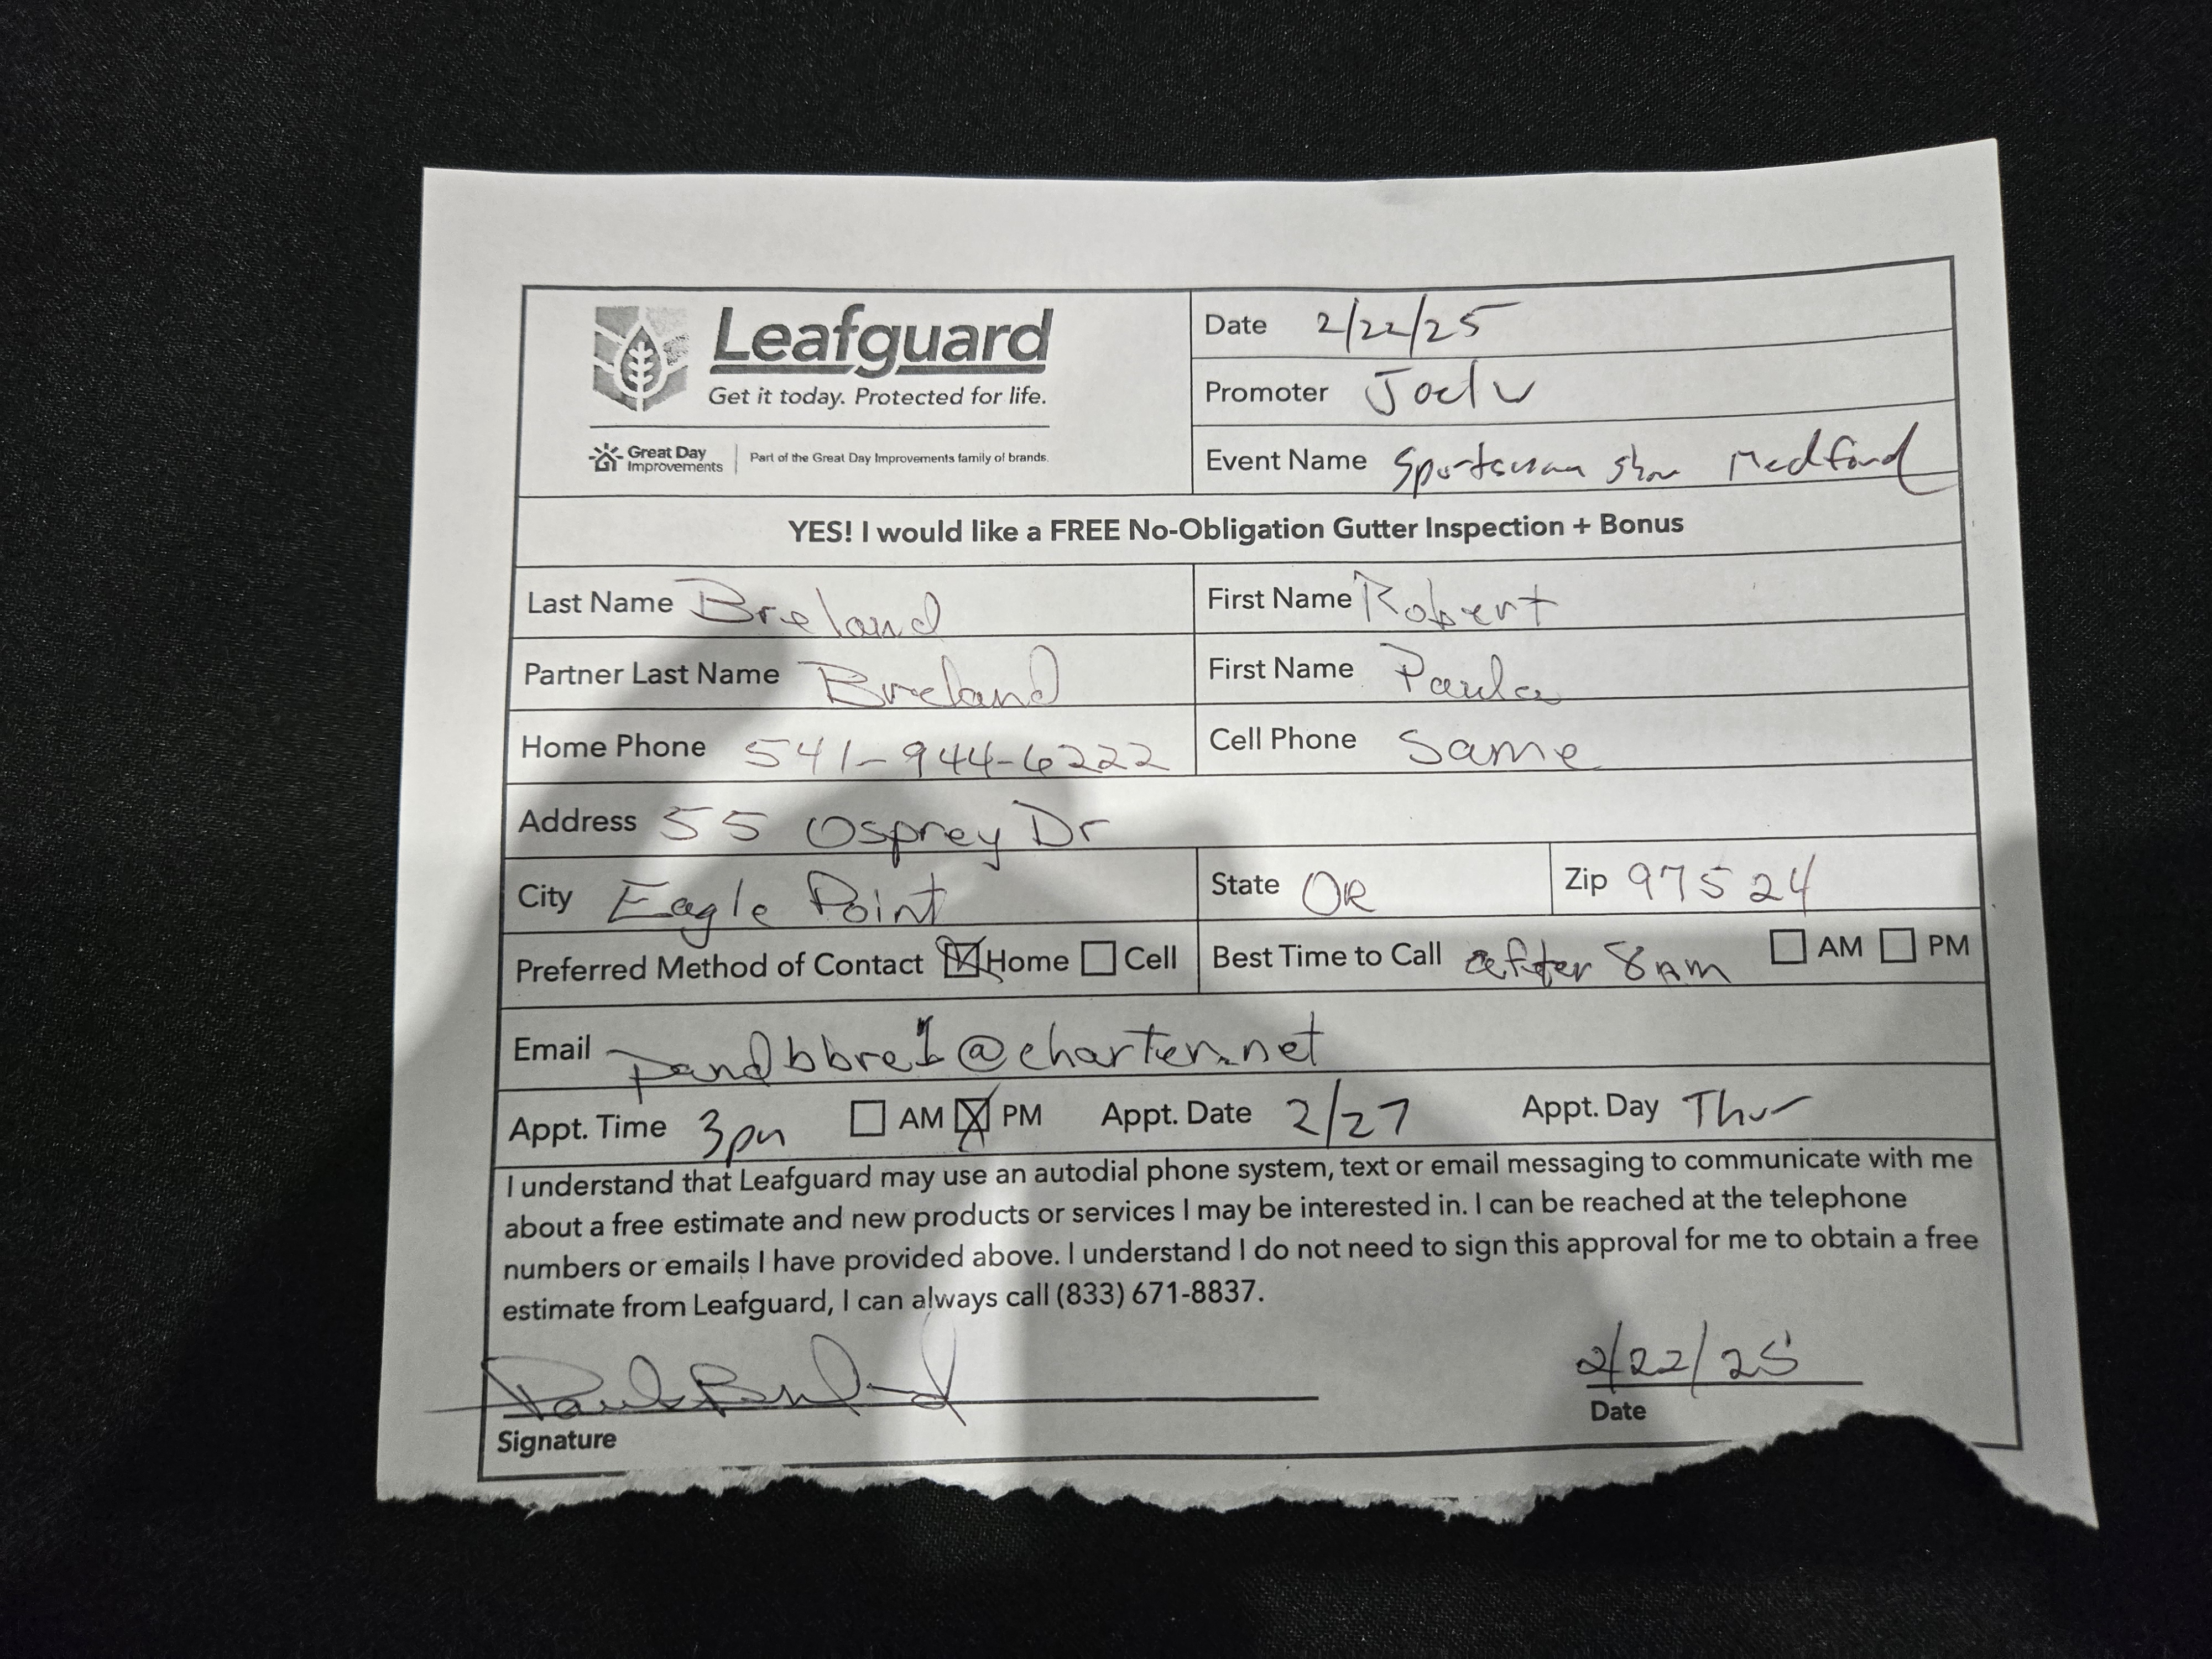 Leafguard
Get it today. Protected for life.
Great Day Improvements | Part of the Great Day Improvements family of brands.
Date 2/22/25
Promoter
Event Name Sportsman show Medford
YES! I would like a FREE No-Obligation Gutter Inspection + Bonus
Last Name Breland First Name Robert
Partner Last Name Breland First Name Paula
Home Phone 541-944-6222 Cell Phone Same
Address 55 Osprey Dr
City Eagle Point State OR Zip 97524
Preferred Method of Contact ☒ Home ☐ Cell Best Time to Call after 8 AM ☐ AM ☐ PM
Email
Appt. Time 3pm ☐ AM ☒ PM Appt. Date 2/27 Appt. Day Thur
I understand that Leafguard may use an autodial phone system, text or email messaging to communicate with me
about a free estimate and new products or services I may be interested in. I can be reached at the telephone
numbers or emails I have provided above. I understand I do not need to sign this approval for me to obtain a free
estimate from Leafguard, I can always call (833) 671-8837.
2/22/25
Signature Date